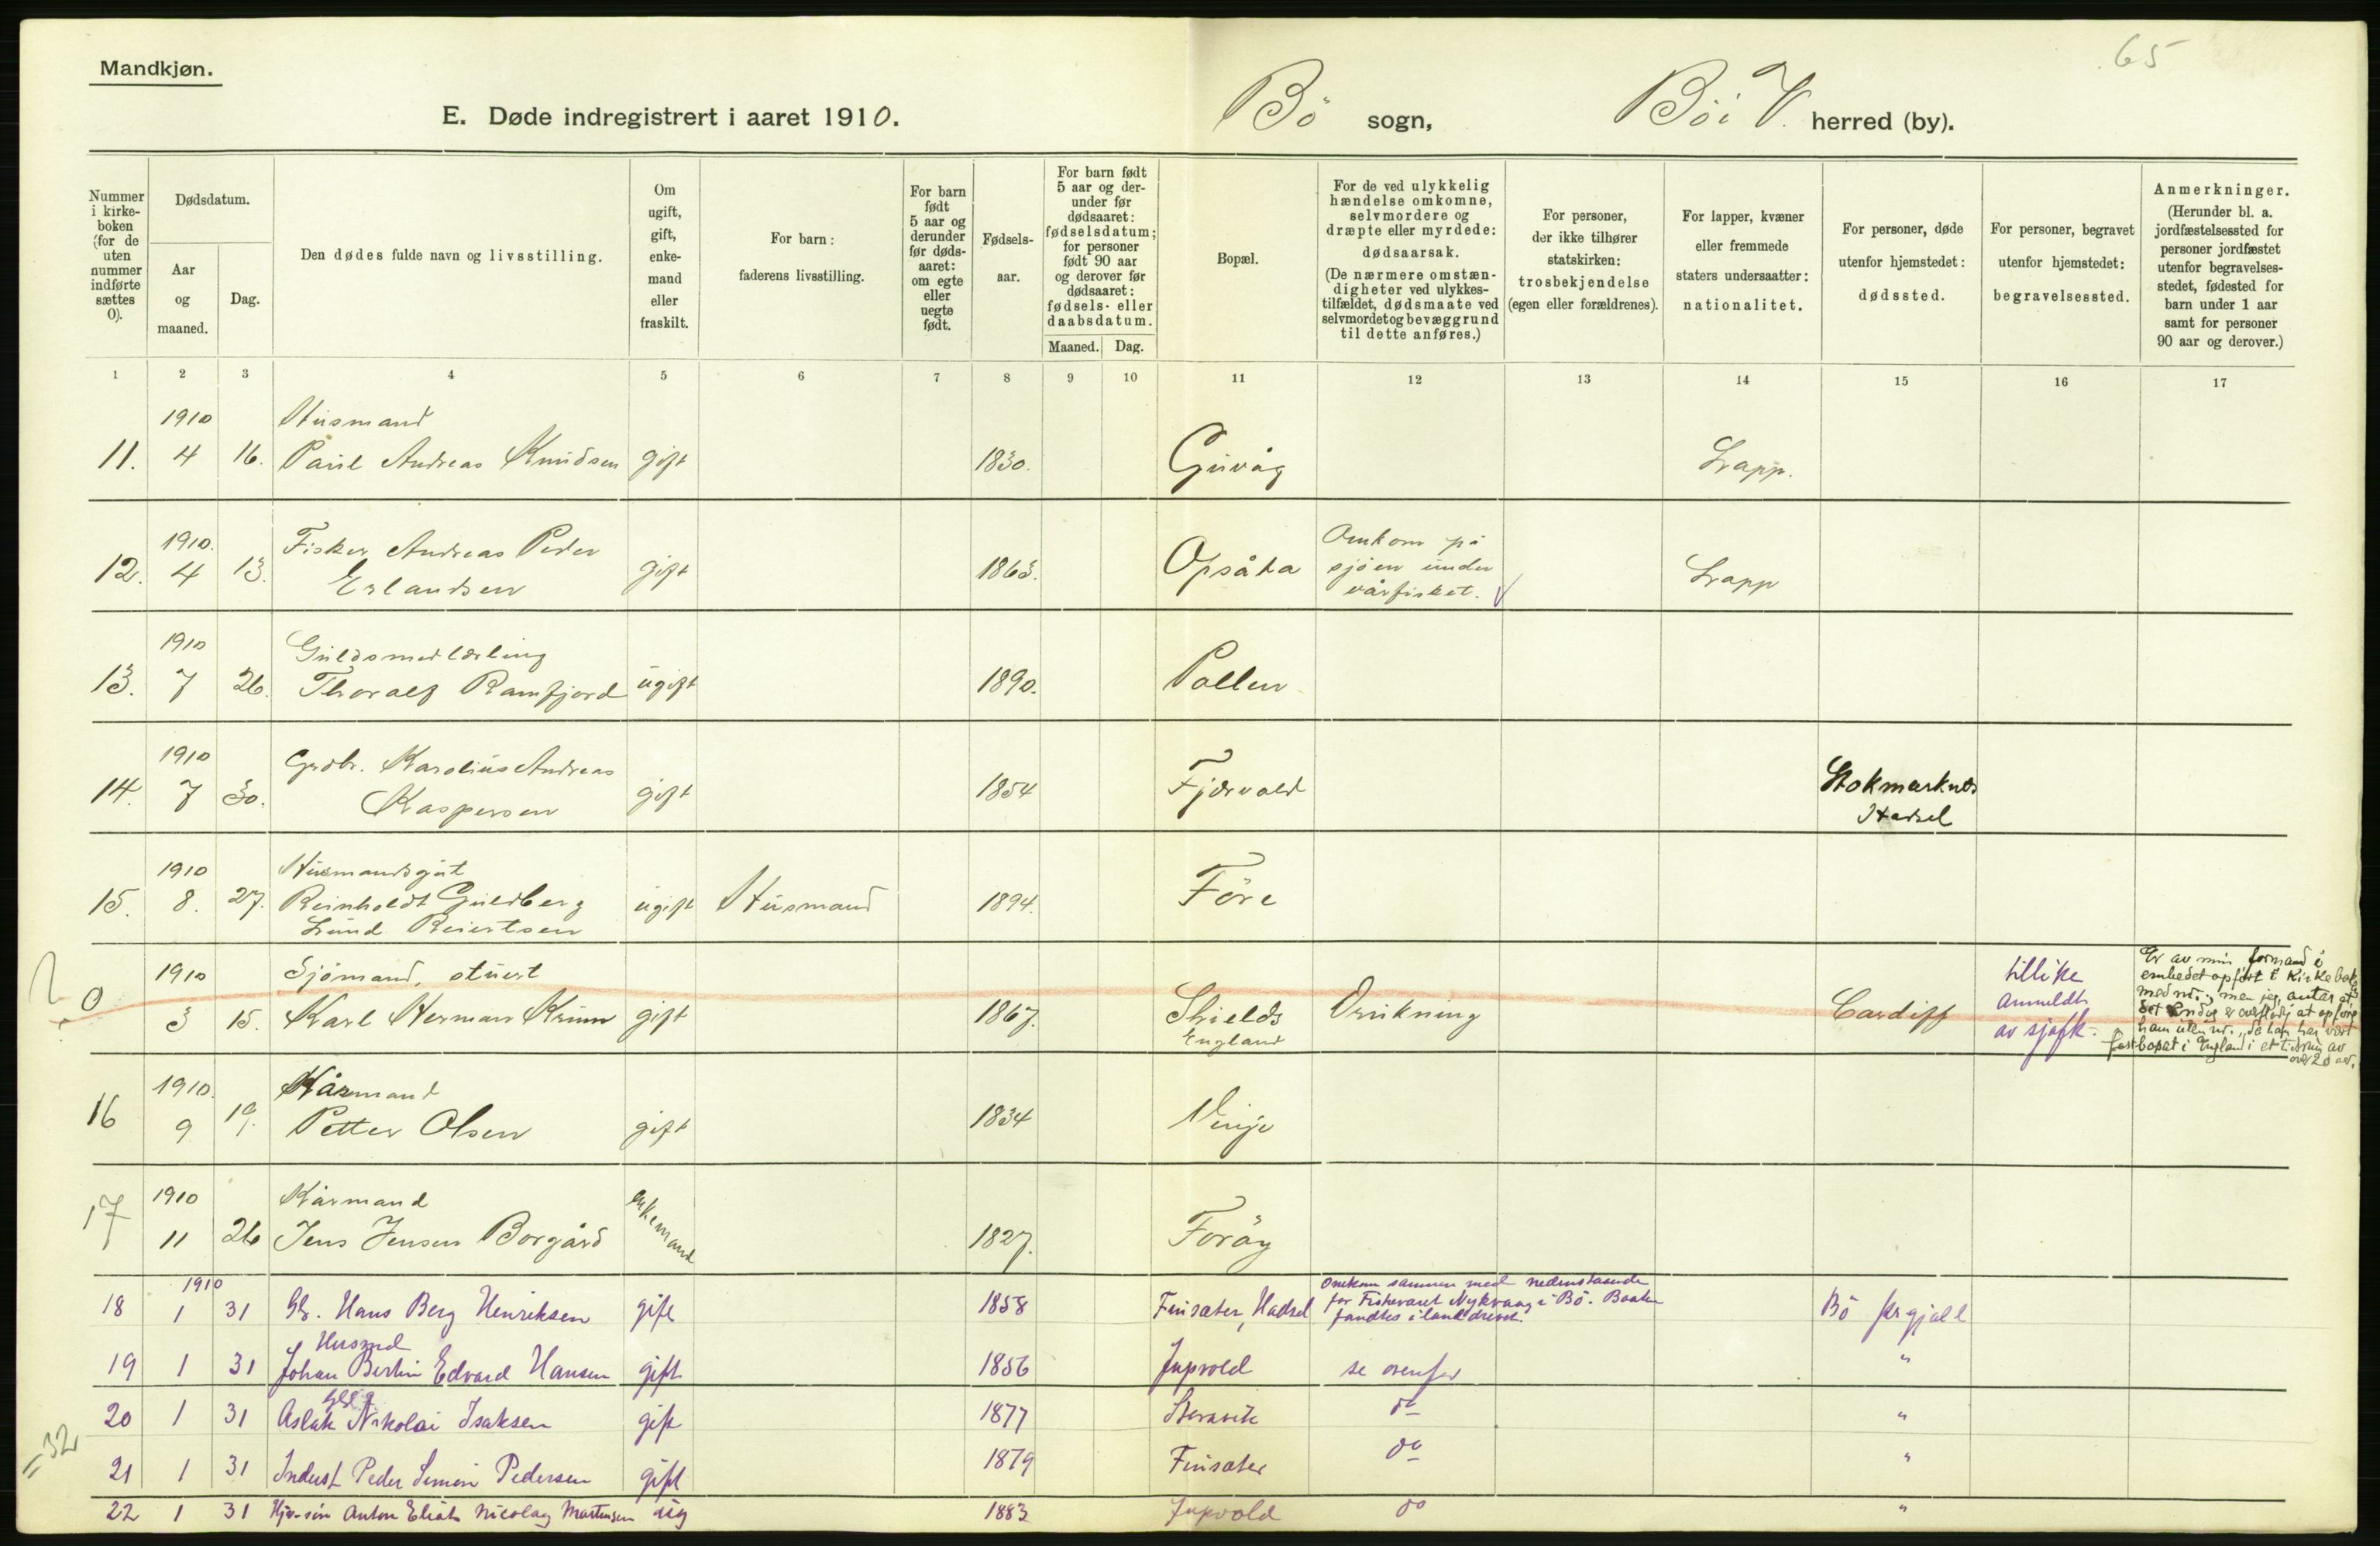 65
Mandkjøn.
E. Døde indregistrert i aaret 1910. Bö sogn, Bö i V. herred (by).
Nummer i kirkeboken (for de uten nummer indførte sættes 0).
Dødsdatum.
Aar og maaned.
Dag.
Den dødes fulde navn og livsstilling.
Om ugift, gift, enkemand eller fraskilt.
For barn: faderens livsstilling.
For barn født 5 aar og derunder før dødsaaret: om egte eller uegte født.
Fødselsaar.
For barn født 5 aar og derunder før dødsaaret: fødselsdatum; for personer født 90 aar og derover før dødsaaret: fødsels- eller daabsdatum.
Maaned. Dag.
Bopæl.
For de ved ulykkelig hændelse omkomne, selvmordere og dræpte eller myrdede: dødsaarsak. (De nærmere omstændigheter ved ulykkestilfældet, dødsmaate ved selvmordet og bevæggrund til dette anføres.)
For personer, der ikke tilhører statskirken: trosbekjendelse (egen eller forældrenes).
For lapper, kvæner eller fremmede staters undersaatter: nationalitet.
For personer, døde utenfor hjemstedet: dødssted.
For personer, begravet utenfor hjemstedet: begravelsessted.
Anmerkninger. (Herunder bl. a. jordfæstelsessted for personer jordfæstet utenfor begravelsesstedet, fødested for barn under 1 aar samt for personer 90 aar og derover.)
1 2 3 4 5 6 7 8 9 10 11 12 13 14 15 16 17
1910 Husmand
11. 4 16. Paul Andreas Knudsen gift 1830. Guvåg Lapp.
1910. Fisker Andreas Peder Omkom på
12. 4 13. Erlandsen gift 1863. Opsåta sjöen under Lapp
vårfisket.
1910 Guldsmedlærling
13. 7 26. Thoralf Ramfjord ugift 1890. Pollen
1910 Grdbr. Karolius Andreas Stokmarknes
14. 7 30. Kaspersen gift 1854 Fjærvold Hadsel
1910 Husmandsgut
15. 8. 27. Reinholdt Guldberg ugift Husmand 1894. Före
Lund Reiertsen
1910 Sjömand, stuert
0 3 15. Karl Herman Krum gift 1867. Shields England Drukning Cardiff
tillike
anmeldt
av sjøfk.
Er av min formand i
embedet opført i Kirkeboken
med nr., men jeg antar at
at opføre
ham uten nr., da han har vært
fastbopat i England i et tidsrum av
over 20 aar.
1910. Kårmand
16 9 19. Petter Olsen gift 1834 Vinje
1910 Kårmand
17 11 26 Jens Jensen Borgård enkemand 1827. Foröy
1910 Omkom sammen med nedenstaaende
18 1 31 Gbr. Hans Berg Henriksen gift 1858 Finsæter, Hadsel for Fiskeværet Nykvaag i Bö. Baaten Bö prgjæld
fandtes i land dreven.
Husmd
19 1 31 Johan Bertin Edvard Hansen gift 1856 Jupvold se ovenfor "
20 1 31 Aslak Nikolai Isaksen gift 1877 do "
=32
21 1 31 Inderst Peder Simon Pedersen gift 1879 Finsæter do "
22 1 31 Anton Eliah Nicolay Martinsen ug 1883 Jupvold do "